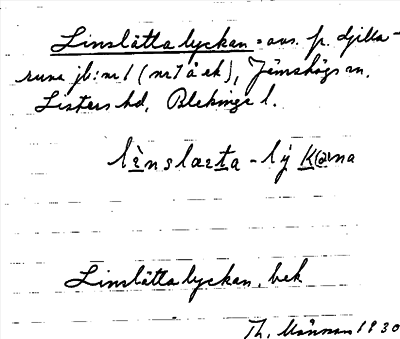 Linslättalyckan = avs. p. Djilla-
runa jb: nr 1 (nr 7 å ek), Jämshögs sn,
Listers hd, Blekinge l.
lìnslæta - lý K(ə)na
Linslättalyckan, bek
Th. Månsson 1930